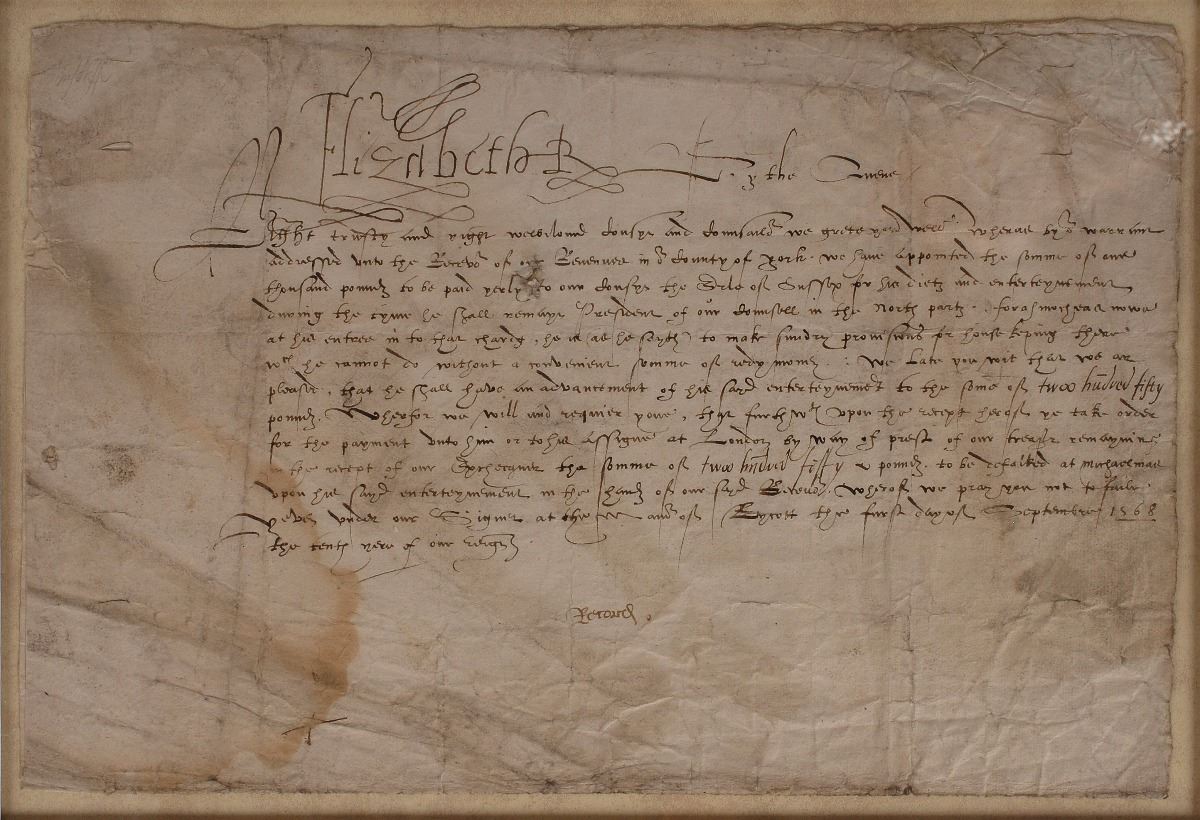 Elizabeth R By the Quene
Right trusty and right welbiloved Cousyn and Counsailor we grete you well. Wheras by or warrant
addressed unto the Recevor of our Revenues in or County of York. we have appointed the somme of one
thousand poundes to be paid yerly to our Cousyn the Erle of Sussex for his dietz and enterteynement
during the tyme he shall remayn President of our Counsell in the North partz. forasmocheas nowe
at his entree in to that chardg, he is (as he sayth) to make sundry provisions for house keping there
wch he cannot do without a convenient somme of redy money : We late you wit that we ar
pleased, that he shall have an advancement of his sayd enterteynement to the some of twoo hundred fifty
poundes. Wherfor we will and requier yowe, that furthwth upon the receipt herof ye take order
for the payment unto him or to his assigne at London by way of prest of our treasur remayning
in the receipt of our Exchecquer the somme of twoo hundred fifty poundes. to be defalked at Michaelmas
upon his sayd enterteynement in the handes of our sayd Recevor. Wherof we pray you not to faile
Yeven under our Signet at the manor of Rycott the first day of Septembre 1568
the tenth yere of our reign
Record.